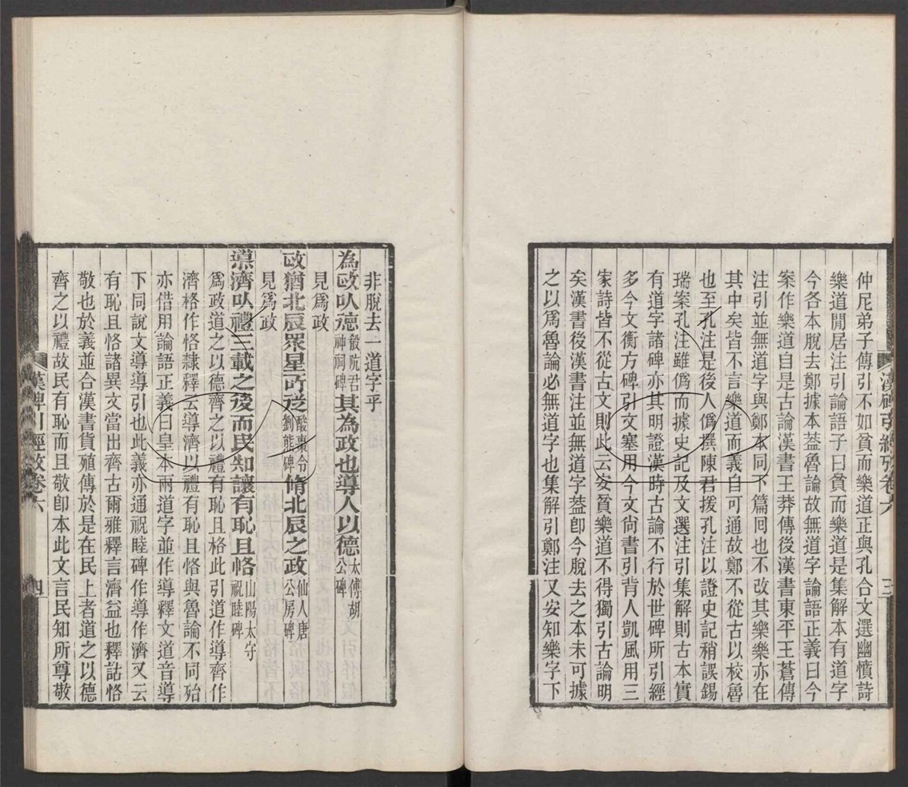 仲尼弟子傳引不如貧而樂道正與孔合文選幽憤詩
樂道閒居注引論語子曰貧而樂道是集解本有道字
今各本脫去鄭據本葢魯論故無道字論語正義曰今
案作樂道自是古論漢書王莽傳後漢書東平王蒼傳
注引並無道字與鄭本同下篇回也不改其樂樂亦在
其中矣皆不言樂道而義自可通故鄭不從古以校魯
也至孔注是後人僞撰陳君援孔注以證史記稍誤錫
瑞案孔注雖僞而據史記及文選注引集解則古本實
有道字諸碑亦其明證漢時古論不行於世碑所引經
多今文衡方碑引文塞用今文尙書引背人凱風用三
家詩皆不從古文則此云安貧樂道不得獨引古論明
矣漢書後漢書注並無道字葢卽今脫去之本未可據
之以爲魯論必無道字也集解引鄭注又安知樂字下
漢碑引經攷卷六 三
非脫去一道字乎
為政㠯德殽阮君神祠碑其為政也導人以德太傅胡公碑
見爲政
政猶北辰眾星所從酸棗令劉熊碑脩北辰之政仙人唐公房碑
見爲政
導濟㠯禮三載之後而民知讓有恥且恪山陽太守祝睦碑
爲政道之以德齊之以禮有恥且格此引道作導齊作
濟格作恪隸釋云導濟以禮有恥且恪與魯論不同殆
亦借用論語正義曰皇本兩道字並作導釋文道音導
下同說文導導引也此義亦通祝睦碑作導作濟又云
有恥且恪諸異文當出齊古爾雅釋言濟益也釋詁恪
敬也於義並合漢書貨殖傳於是在民上者道之以德
齊之以禮故民有恥而且敬卽本此文言民知所尊敬
漢碑引經攷卷六 四